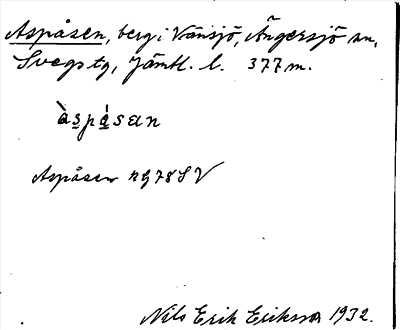 Aspåsen, berg i Vänsjö, Ängersjö sn,
Svegs tg, Jämtl. l. 377 m.
àspásan
Aspåsen rg 78 SV
Nils Erik Eriksson 1932.